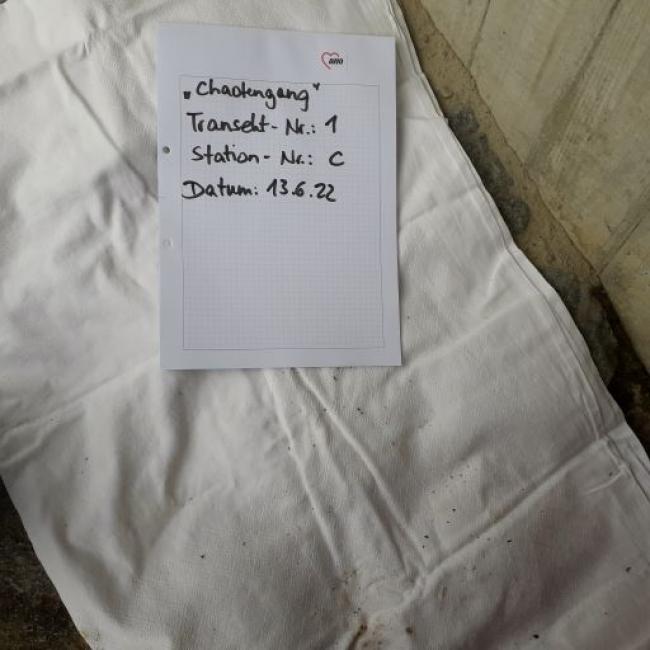 ano
„Chaotengang“
Transekt-Nr.: 1
Station-Nr.: C
Datum: 13.6.22